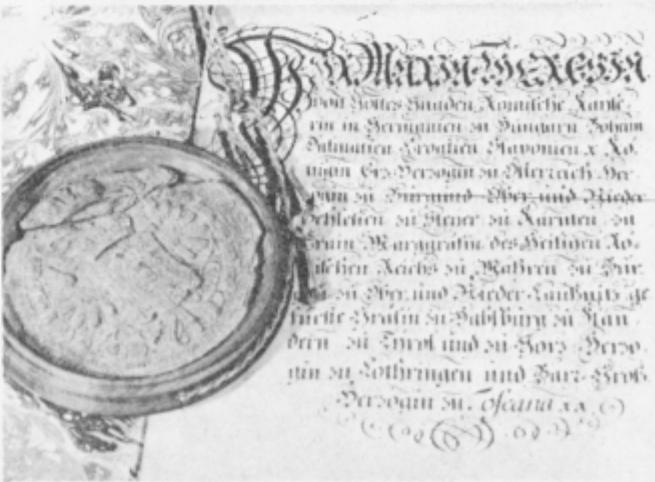 Wir Maria Theresia
von Gottes Gnaden Römische Kaÿse-
rin in Germanien zu Hungarn Böheim
Dalmatien Croatien Slavonien x Kö-
nigin Erz-Herzogin zu Österreich Her-
zogin zu Burgund Ober und Nieder
Schlesien zu Steyer zu Kärnten zu
Crain Marggräfin des Heiligen Rö-
mischen Reichs zu Mähren zu Bur-
gau zu Ober und Nieder-Laußnitz ge
fürstte Gräfin zu Habspurg zu Flan
dern zu Tyrol und zu Görz Herzo-
gin zu Lothringen und Barr Groß
Herzogin zu Toscana xx